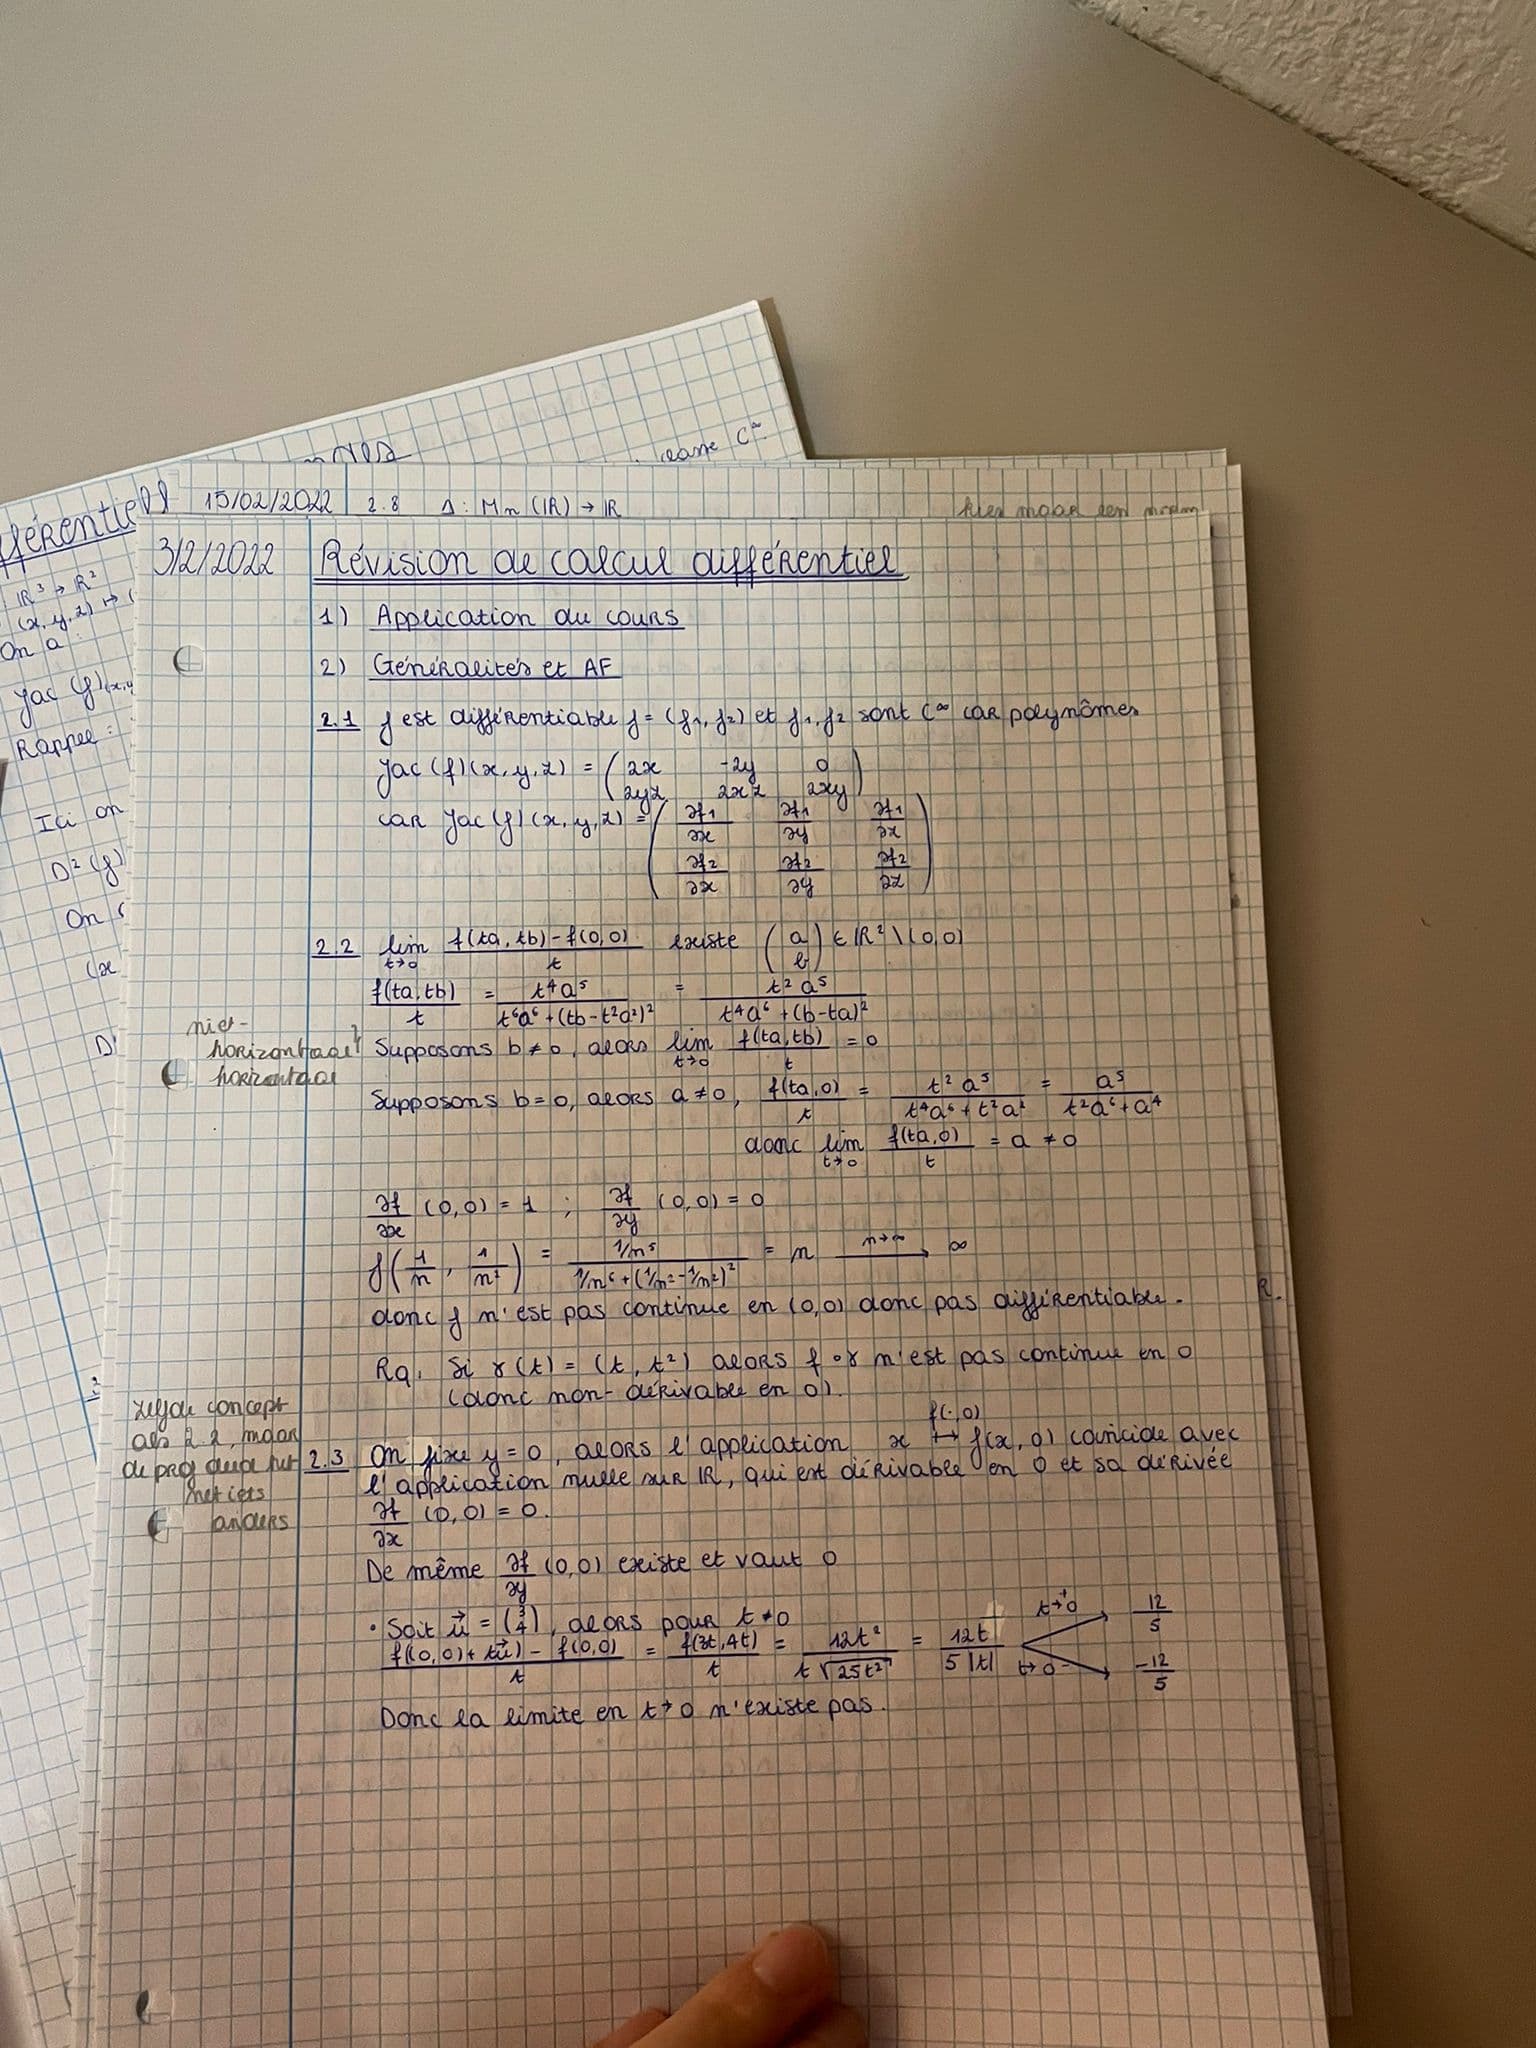 fférentiell
ℝ³ → ℝ²
(x, y, z) ↦ (
On a :
Jac (f)(x,y
Rappel :
Ici on
D² (f)
On
(x
classe C∞
15/02/2022 2.8 Δ : Mn (ℝ) → ℝ
kies maar een
3/2/2022 Révision de calcul différentiel
1) Application du cours
2) Généralités et AF
2.1 f est différentiable f = (f₁, f₂) et f₁, f₂ sont C∞ car polynômes
Jac (f)(x, y, z) = ( 2x -2y 0
2yz 2xz 2xy )
car Jac (f)(x, y, z) = ( ∂f₁/∂x ∂f₁/∂y ∂f₁/∂z
∂f₂/∂x ∂f₂/∂y ∂f₂/∂z )
2.2 lim t→0 (f(ta, tb) - f(0,0))/t existe (a b) ∈ ℝ² \ (0,0)
f(ta,tb)/t = t⁴a⁵/(t⁶a⁶ + (tb - t²a²)²) = t²a⁵/(t⁴a⁶ + (b - ta)²
niet-
horizontaal ? Supposons b ≠ 0, alors lim t→0 f(ta,tb)/t = 0
horizontaal
Supposons b = 0, alors a ≠ 0, f(ta,0)/t = t²a⁵/(t⁴a⁶ + t²a⁴) = a⁵/(t²a⁶ + a⁴)
donc lim t→0 f(ta,0)/t = a ≠ 0
∂f/∂x (0,0) = 1 ; ∂f/∂y (0,0) = 0
f(1/n, 1/n²) = (1/n⁵)/(1/n⁶ + (1/n² - 1/n²)²) = n n→∞ → ∞
donc f n'est pas continue en (0,0) donc pas différentiable.
R.
Rq. Si γ(t) = (t, t²) alors f ∘ γ n'est pas continue en 0
(donc non-dérivable en 0).
zelfde concept
als 2.2, maar
de prof deed het
net iets
anders
f(·,0)
2.3 On fixe y = 0, alors l'application x ↦ f(x, 0) coïncide avec
l'application nulle sur ℝ, qui est dérivable en 0 et sa dérivée
∂f/∂x (0,0) = 0.
De même ∂f/∂y (0,0) existe et vaut 0
• Soit u⃗ = (3 4), alors pour t ≠ 0
(f((0,0) + tu⃗) - f(0,0))/t = f(3t,4t)/t = 12t²/(t√25t²) = 12t/(5|t|) t→0⁺ 12/5
t→0⁻ -12/5
Donc la limite en t→0 n'existe pas.